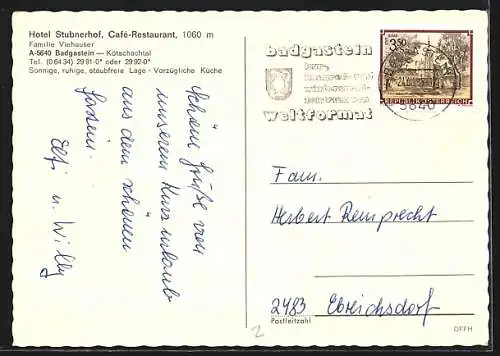 Hotel Stubnerhof, Café-Restaurant, 1060 m
Familie Viehauser
A-5640 Badgastein — Kötschachtal
Tel. (0 64 34) 29 91-0* oder 29 92-0*
Sonnige, ruhige, staubfreie Lage - Vorzügliche Küche
Schöne Grüße von
unserem Kurzurlaub
aus dem schönen
Gastein.
Elfi u. Willy
badgastein
kur-,
weltformat
3.50
REPUBLIK ÖSTERREICH
5640
Fam.
Herbert Remprecht
2483 Ebreichsdorf
Postleitzahl
DFFH
2